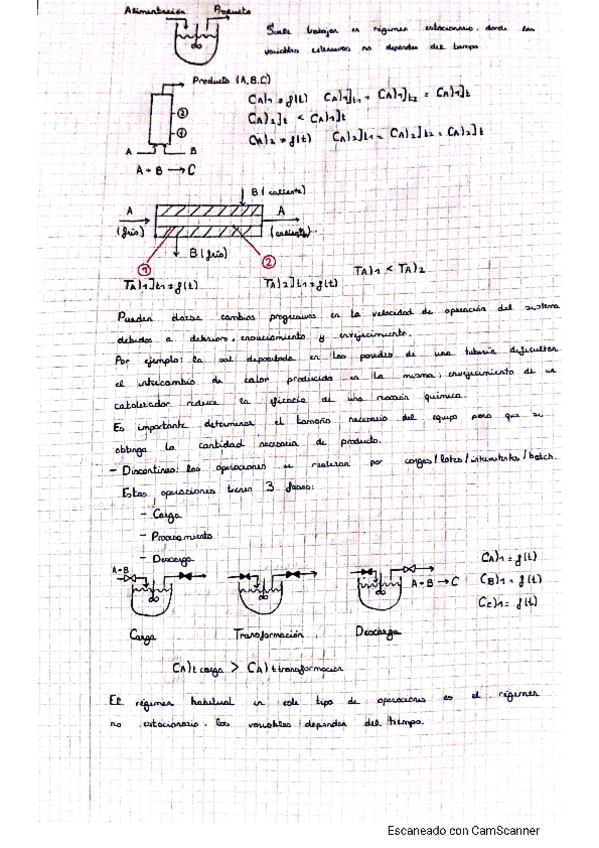 Alimentación Producto
Suele trabajar en régimen estacionario, donde las
variables extensivas no dependen del tiempo
Producto (A,B,C)
CA)1 ≠ f(t) CA)1]t1 = CA)1]t2 = CA)1]t
CA)2]t < CA)1]t
CA)2 ≠ f(t) CA)2]t1 = CA)2]t2 = CA)2]t
2
1
A B
A + B → C
B (caliente)
A A
(frío) (caliente)
B (frío)
1 2
TA)1 < TA)2
TA)1]t1 ≠ f(t) TA)2]t1 ≠ f(t)
Pueden darse cambios progresivos en la velocidad de operación del sistema
debidos a deterioro, ensuciamiento y envejecimiento.
Por ejemplo: la sal depositada en las paredes de una tubería dificultan
el intercambio de calor producido en la misma, envejecimiento de un
catalizador reduce la eficacia de una reacción química.
Es importante determinar el tamaño necesario del equipo para que se
obtenga la cantidad necesaria de producto.
- Discontinuo: las operaciones se realizan por cargas/lotes/intermitente/batch.
Estas operaciones tienen 3 fases:
- Carga
- Procesamiento
- Descarga
A+B
A + B → C
CA)1 = f(t)
CB)1 = f(t)
CC)1 = f(t)
Carga Transformación Descarga
CA)t carga > CA)t transformación
El régimen habitual en este tipo de operaciones es el régimen
no estacionario. Las variables dependen del tiempo.
Escaneado con CamScanner